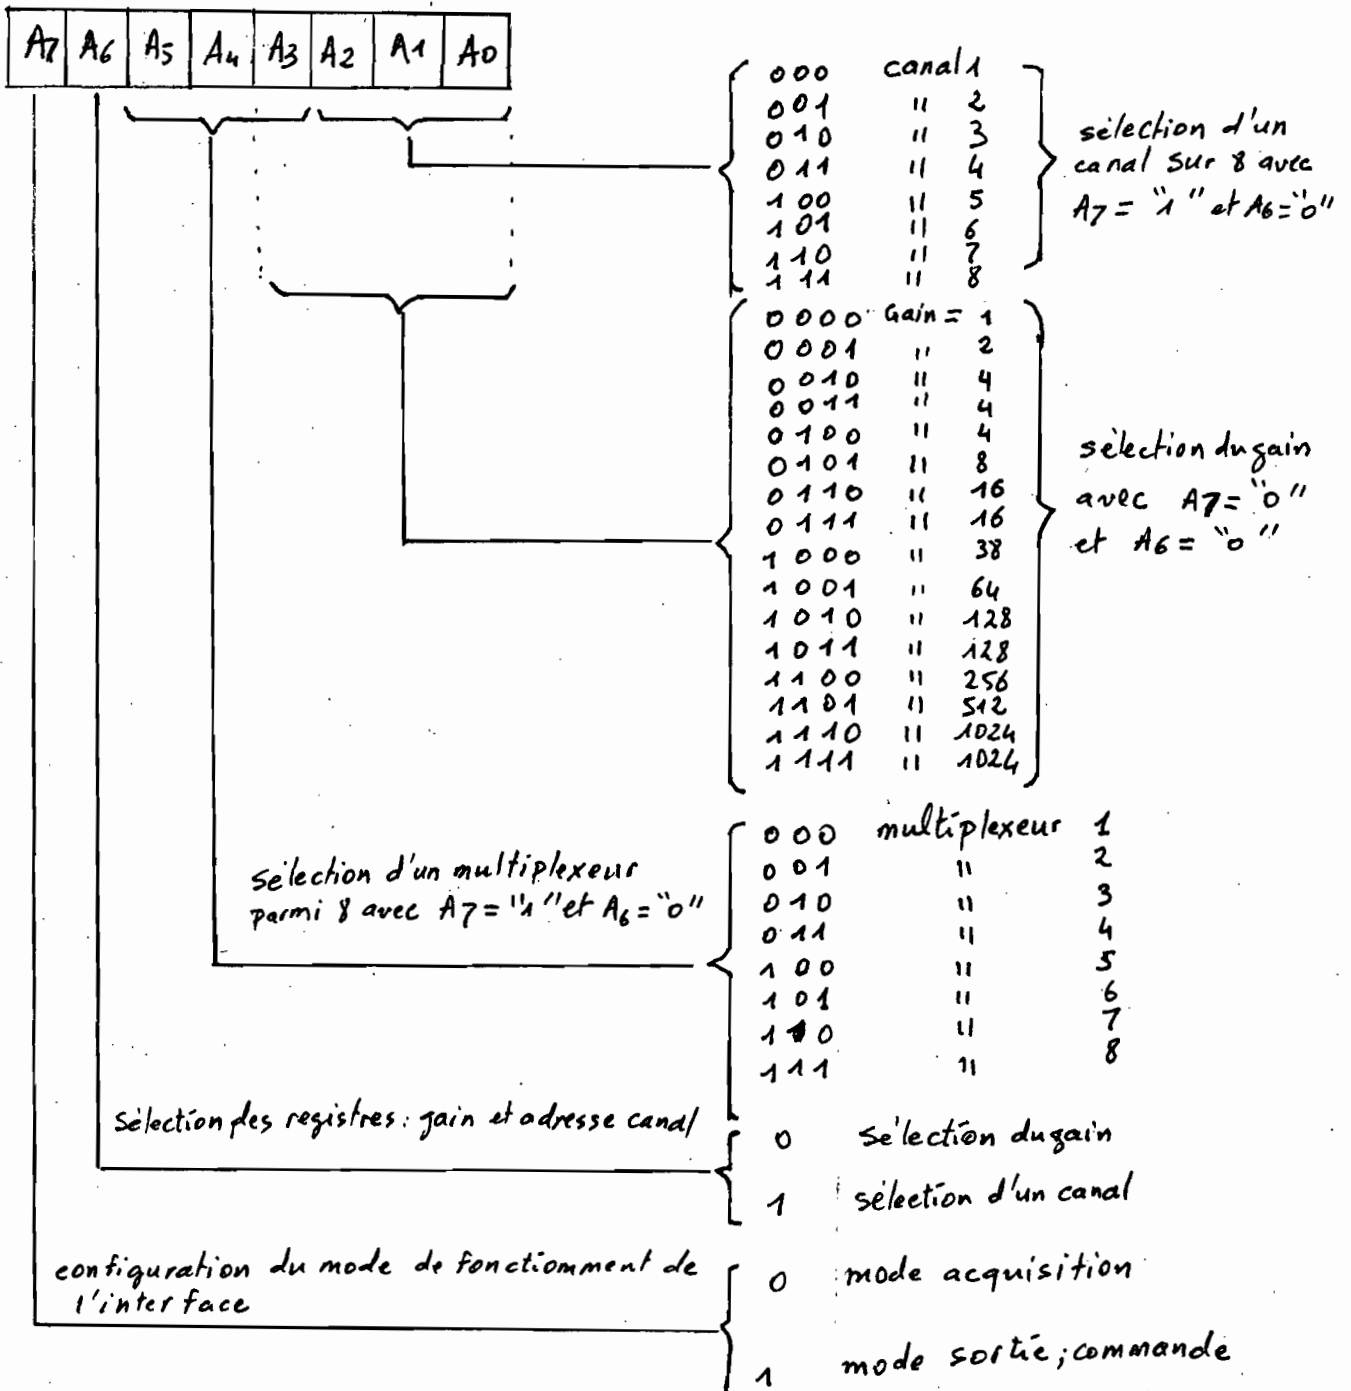 A7 A6 A5 A4 A3 A2 A1 A0
000 canal 1
001 " 2
010 " 3
011 " 4
100 " 5
101 " 6
110 " 7
111 " 8
sélection d'un
canal sur 8 avec
A7 = "1" et A6 = "0"
0000 Gain = 1
0001 " 2
0010 " 4
0011 " 4
0100 " 4
0101 " 8
0110 " 16
0111 " 16
1000 " 38
1001 " 64
1010 " 128
1011 " 128
1100 " 256
1101 " 512
1110 " 1024
1111 " 1024
sélection du gain
avec A7 = "0"
et A6 = "0"
sélection d'un multiplexeur
parmi 8 avec A7 = "1" et A6 = "0"
000 multiplexeur 1
001 " 2
010 " 3
011 " 4
100 " 5
101 " 6
110 " 7
111 " 8
Sélection des registres : gain et adresse canal
0 sélection du gain
1 sélection d'un canal
configuration du mode de fonctiomment de
l'interface
0 mode acquisition
1 mode sortie ; commande